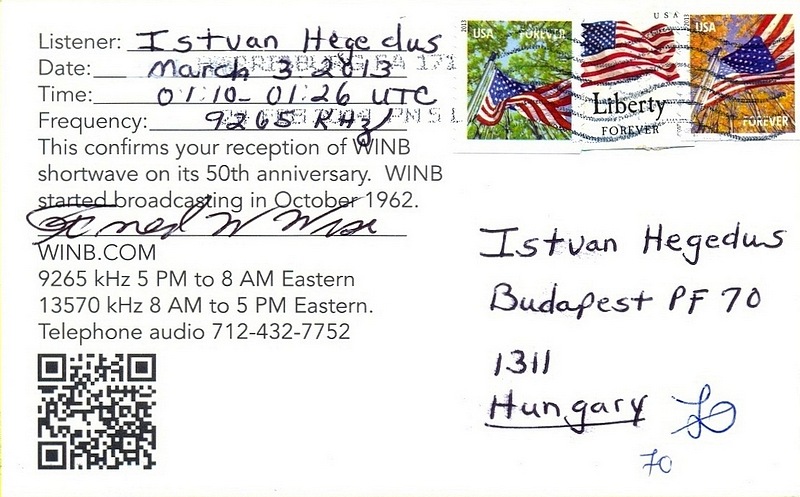 Listener: Istvan Hegedus
Date: March 3 2013
Time: 01:10-01:26 UTC
Frequency: 9265 KHz
This confirms your reception of WINB
shortwave on its 50th anniversary. WINB
started broadcasting in October 1962.
WINB.COM
9265 kHz 5 PM to 8 AM Eastern
13570 kHz 8 AM to 5 PM Eastern.
Telephone audio 712-432-7752
USA FOREVER
2013
USA
Liberty
FOREVER
USA
FOREVER
2013
HARRISBURG PA 171
Istvan Hegedus
Budapest PF 70
1311
Hungary
70